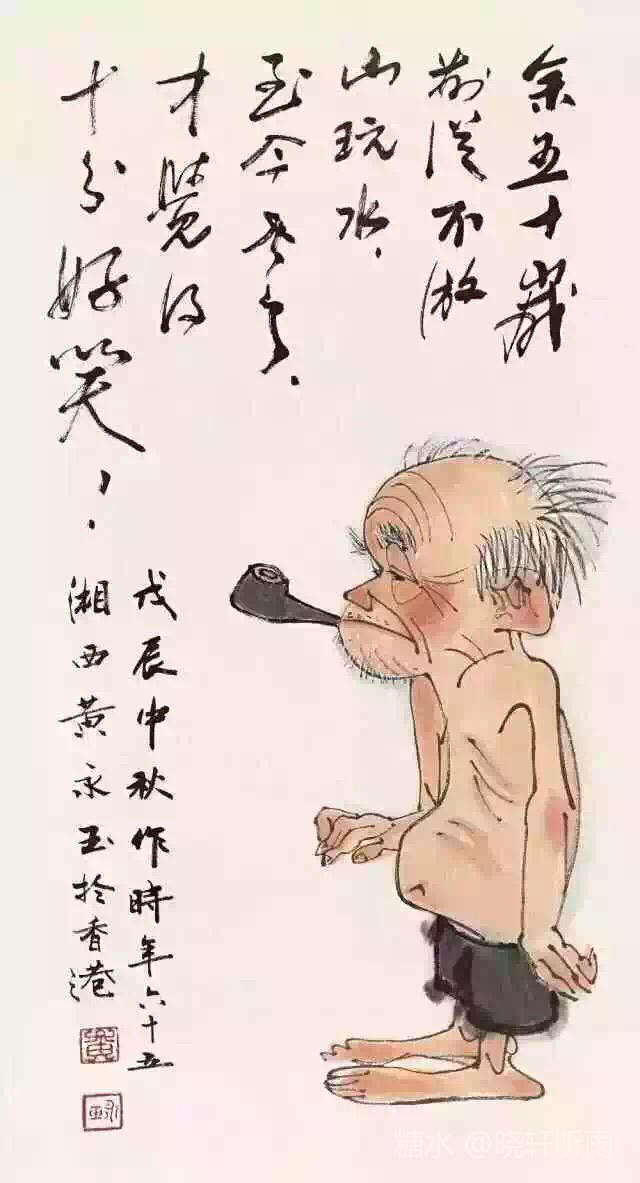 余五十歲
前從不游
山玩水、
至今老矣、
才覺得
十分好笑，、
戊辰中秋作時年六十五
湘西黃永玉於香港
黃
糖水 @晓轩听雨